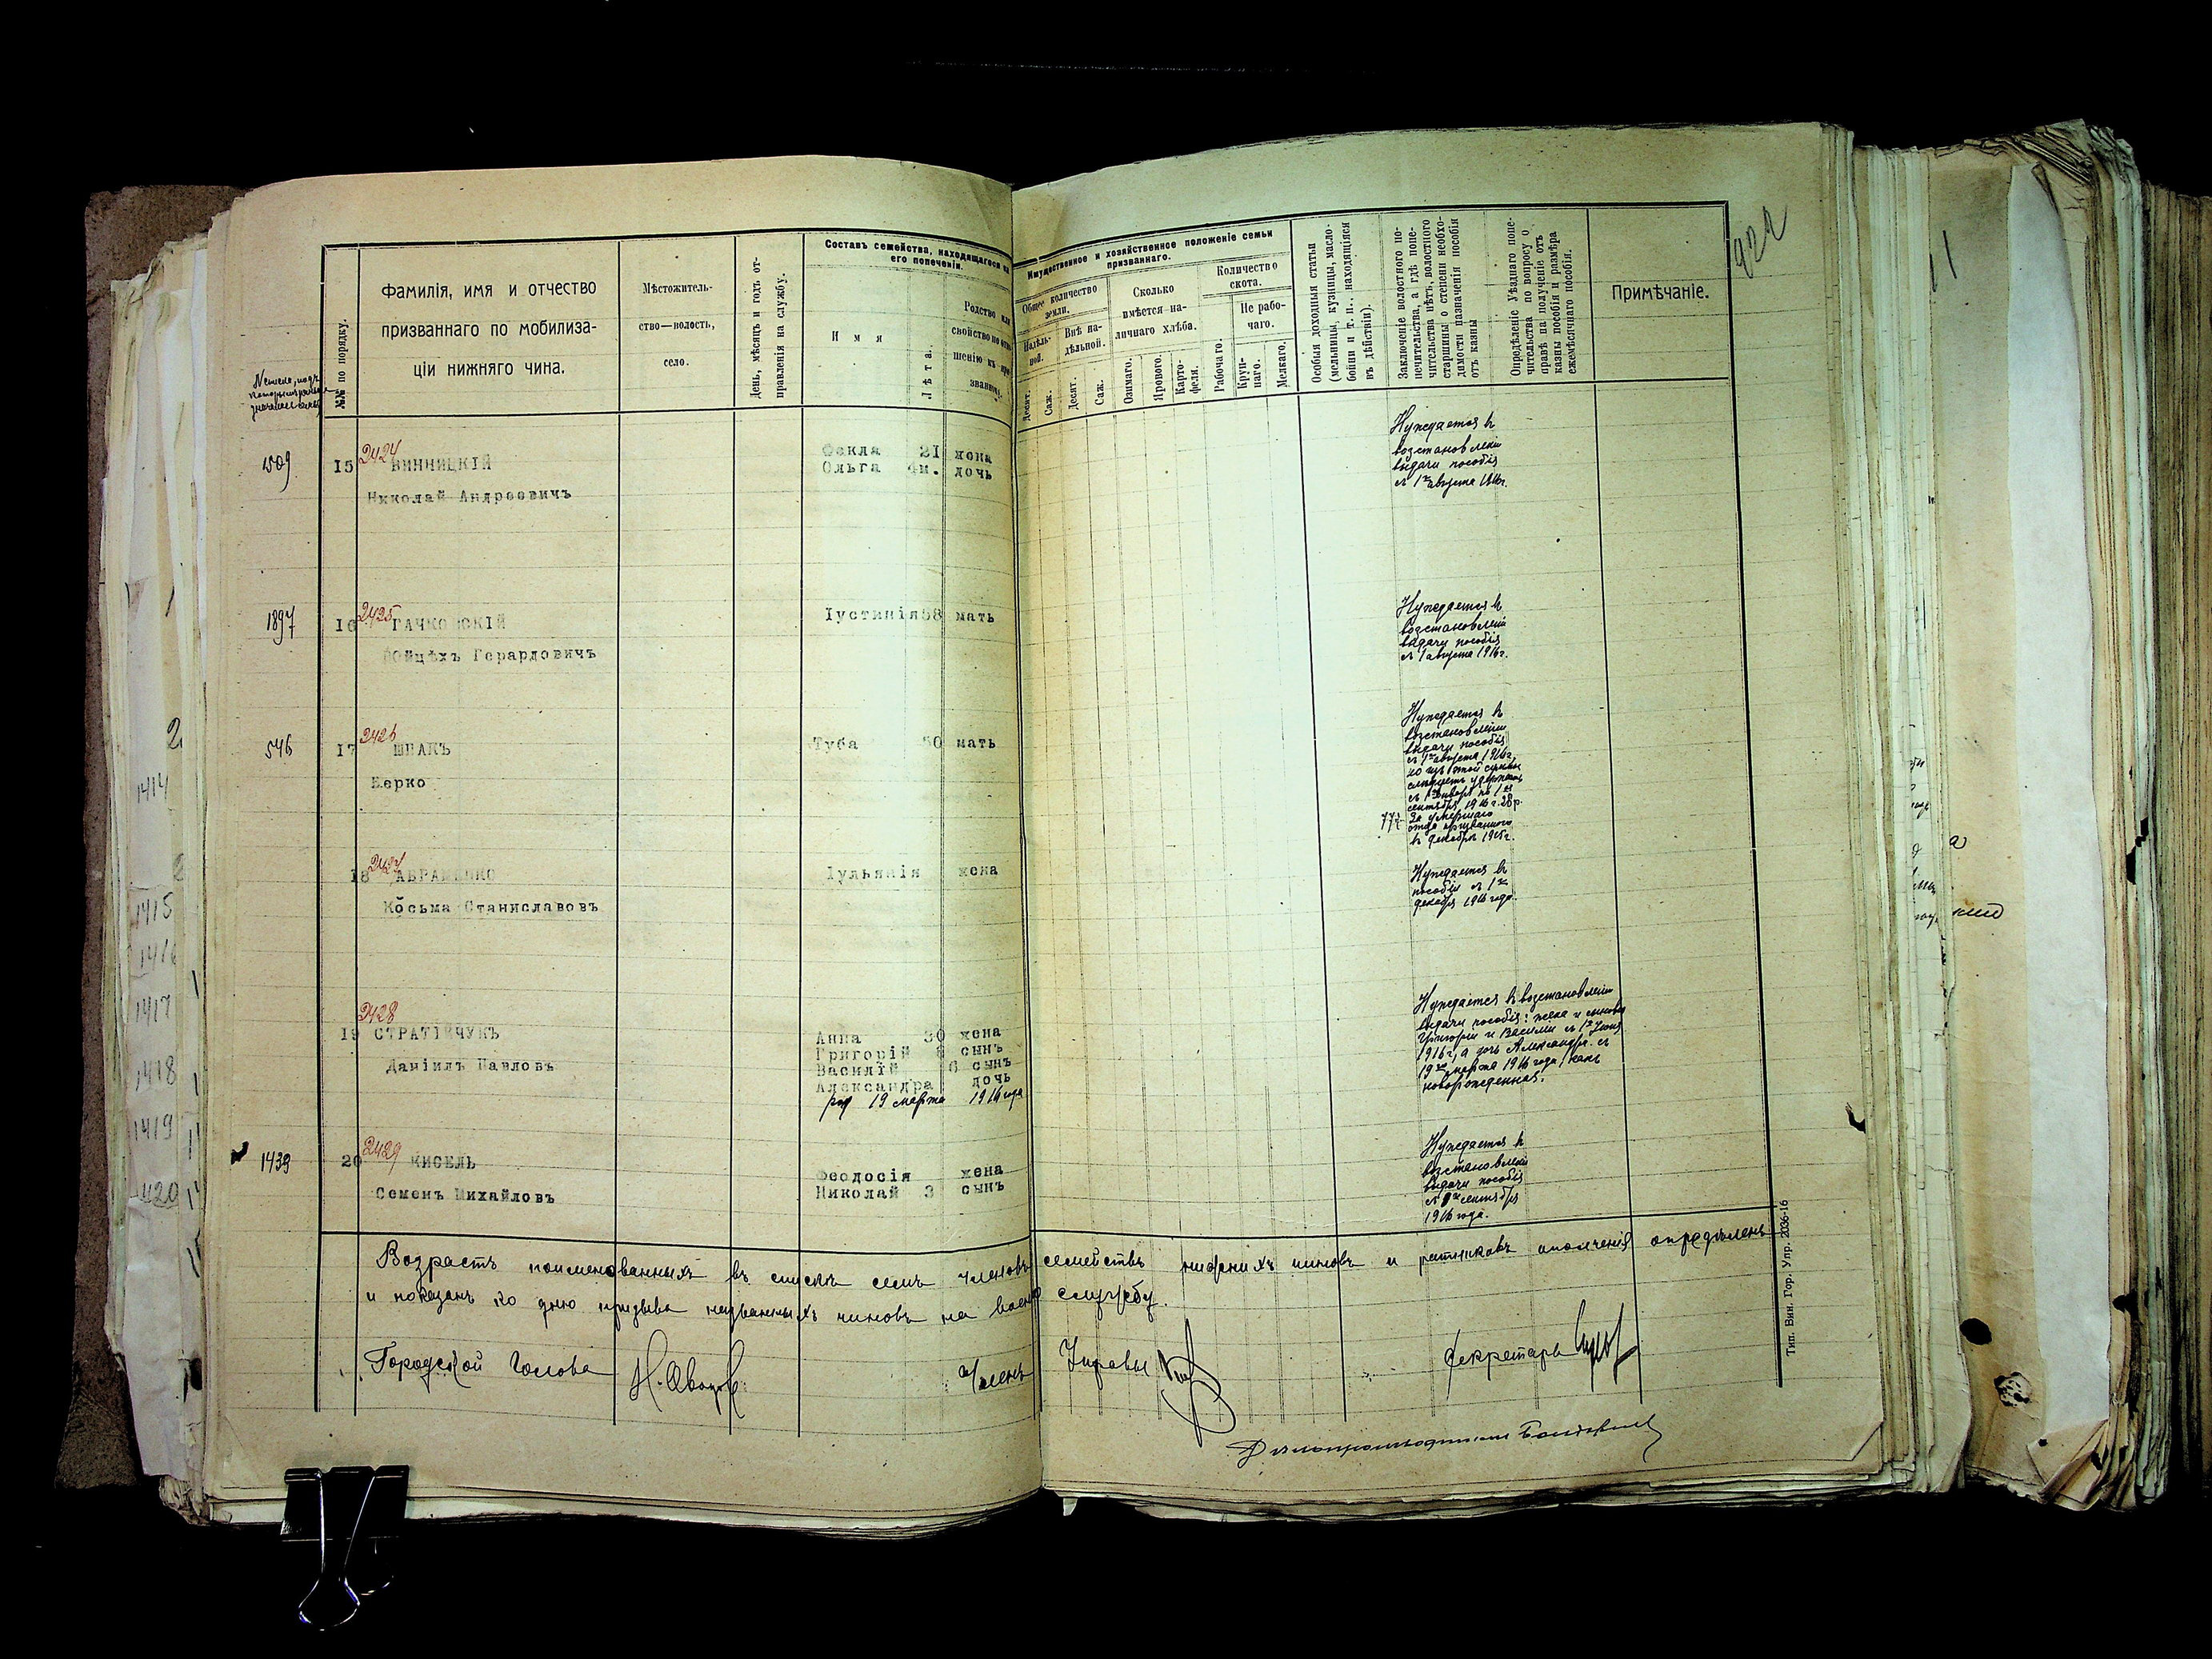 922
Фамилія, имя и отчество
призваннаго по мобилиза-
ціи нижняго чина.
№№ по порядку.
Мѣстожитель-
ство—волость,
село.
День, мѣсяцъ и годъ от-
правленія на службу.
Составъ семейства, находящагося на
его попеченіи.
Имя
Лѣта.
Родство или
свойство по отно-
шенію къ при-
званному.
Имущественное и хозяйственное положеніе семьи
призваннаго.
Общее количество
земли.
Надѣль-
ной.
Внѣ на-
дѣльной.
Десят.
Саж.
Десят.
Саж.
Сколько
имѣется на-
личнаго хлѣба.
Озимаго.
Ярового.
Карто-
феля.
Количество
скота.
Рабочаго.
Не рабо-
чаго.
Круп-
наго.
Мелкаго.
Особыя доходныя статьи
(мельницы, кузницы, масло-
бойни и т. п., находящіяся
въ дѣйствіи).
Заключеніе волостного по-
печительства, а гдѣ попе-
чительства нѣтъ, волостного
старшины о степени необхо-
димости назначенія пособія
отъ казны
Опредѣленіе Уѣзднаго попе-
чительства по вопросу о
правѣ на полученіе отъ
казны пособія и размѣра
ежемѣсячнаго пособія.
Примѣчаніе.
1509 15 2424 ВИННИЦКІЙ
Николай Андреевичъ
Фекла 21 жена
Ольга 4м. дочь
Нуждается въ
возстановленіи
выдачи пособія
съ 1го августа 1916г.
1897 16 2425 ГАЧКОВСКІЙ
Войцѣхъ Герардовичъ
Іустинія 58 мать
Нуждается въ
возстановленіи
выдачи пособія
съ 1 августа 1916г.
546 17 2426 ШПАКЪ
Берко
Туба 50 мать
Нуждается въ
возстановленіи
выдачи пособія
съ 1го августа 1916г.
но изъ этой суммы
слѣдуетъ удержать
съ 1 января по 1е
сентября 1916 г. 28р.
77к. за умершаго
отца призваннаго
въ декабрѣ 1915г.
18 2427 АВРАМЕНКО
Косьма Станиславовъ
Іульянія жена
Нуждается въ
пособіи съ 1го
декабря 1916 года.
19 2428 СТРАТІЙЧУКЪ
Даніилъ Павловъ
Анна 30 жена
Григорій 8 сынъ
Василій 6 сынъ
Александра дочь
род 19 марта 1916 года
Нуждается въ возстановленіи
выдачи пособія: жена и сыновья
Григорій и Василій съ 1го Іюня
1916г., а дочь Александра съ
19го марта 1916 года, какъ
новорожденная.
1439 20 2429 КИСЕЛЬ
Семенъ Михайловъ
Феодосія жена
Николай 3 сынъ
Нуждается въ
возстановленіи
выдачи пособія
съ 1го сентября
1916 года.
Возрастъ поименованныхъ въ спискѣ семъ членовъ семействъ нижнихъ чиновъ и ратниковъ ополченія опредѣленъ
и показанъ ко дню призыва названныхъ чиновъ на военную службу.
Городской Голова Членъ Управы Секретарь
Дѣлопроизводитель
Тип. Вин. Гор. Упр. 2036-16
1414
1415
1416
1417
1418
1419
1420